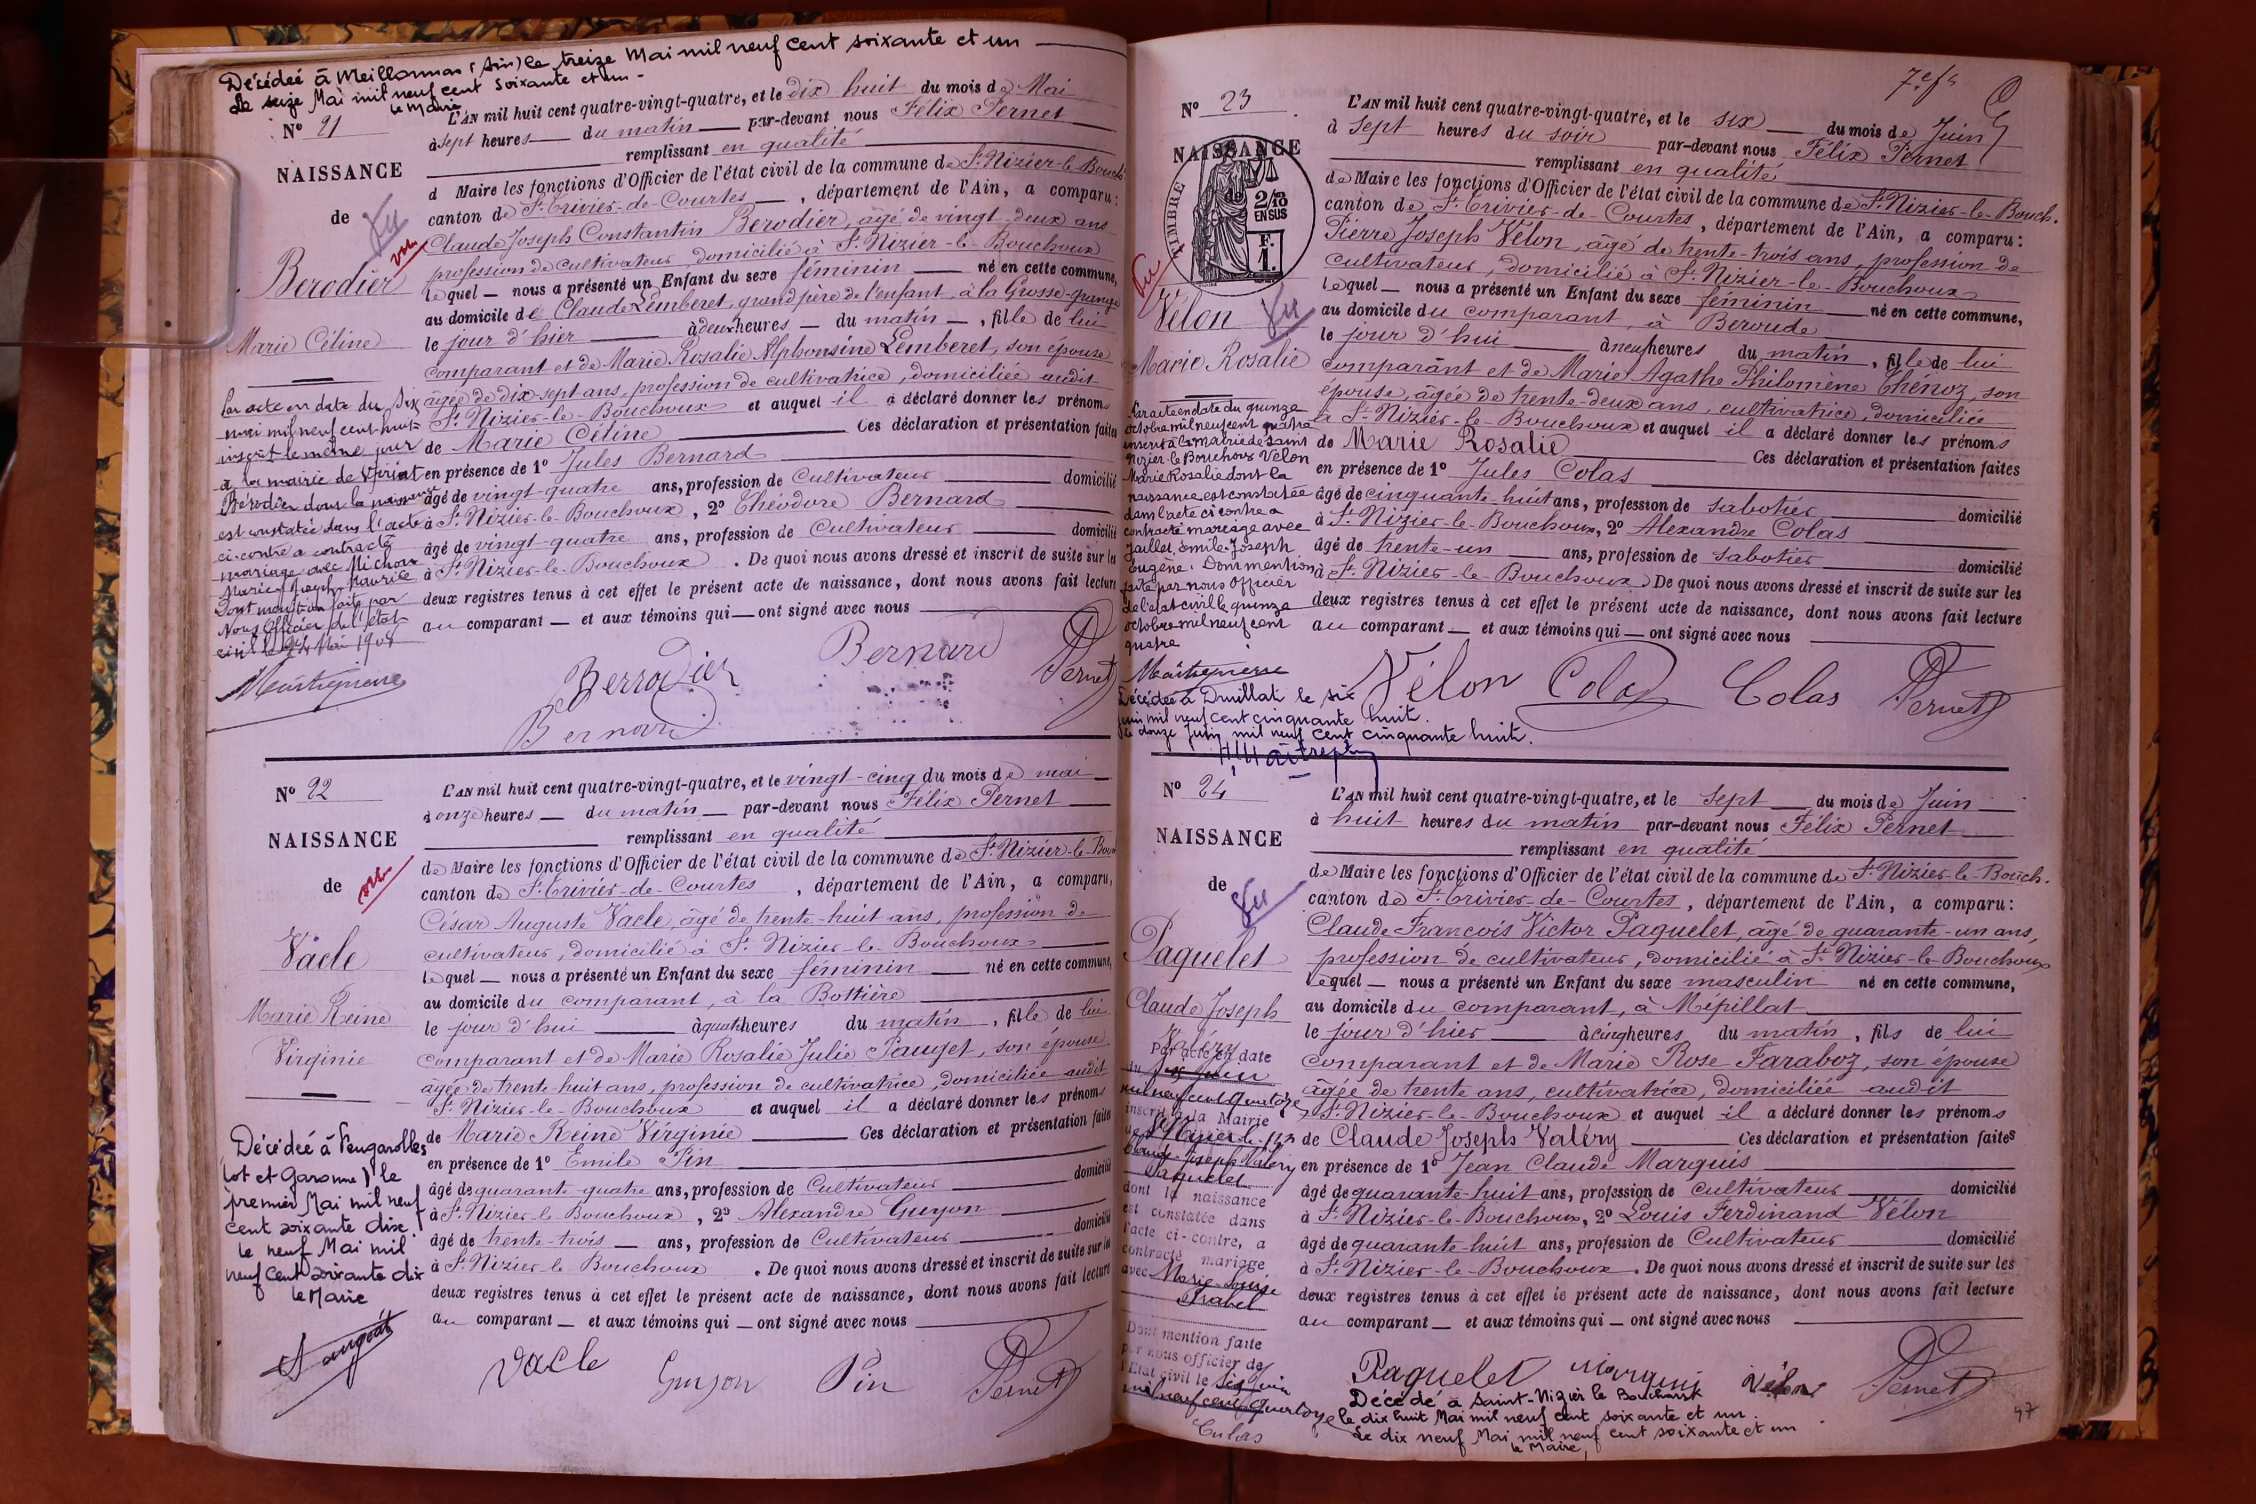 Décédée à Meillonnas (Ain) le treize Mai mil neuf cent soixante et un
Le seize Mai mil neuf cent soixante et un -
le Maire
N° 21
NAISSANCE
de
Vu
Berodier
Marie Céline
L'AN mil huit cent quatre-vingt-quatre, et le dix huit du mois de Mai
à sept heures du matin par-devant nous Félix Pernet
remplissant en qualité
d Maire les fonctions d'Officier de l'état civil de la commune de St Nizier-le-Bouch.
canton de St Trivier-de-Courtes, département de l'Ain, a comparu:
Claude Joseph Constantin Berodier, âgé de vingt-deux ans
profession de cultivateur, domicilié à St Nizier-le-Bouchoux
lequel nous a présenté un Enfant du sexe féminin né en cette commune,
au domicile de Claude Lemberet, grand père de l'enfant, à la Grosse-grange
le jour d'hier à deux heures du matin, fille de lui
comparant et de Marie Rosalie Alphonsine Lemberet, son épouse
âgée de dix-sept ans, profession de cultivatrice, domiciliée audit
St Nizier-le-Bouchoux et auquel il a déclaré donner les prénoms
de Marie Céline Ces déclaration et présentation faites
en présence de 1° Jules Bernard
âgé de vingt-quatre ans, profession de Cultivateur domicilié
à St Nizier-le-Bouchoux, 2° Théodore Bernard
âgé de vingt-quatre ans, profession de Cultivateur domicilié
à St Nizier-le-Bouchoux. De quoi nous avons dressé et inscrit de suite sur les
deux registres tenus à cet effet le présent acte de naissance, dont nous avons fait lecture
au comparant et aux témoins qui ont signé avec nous
Par acte en date du six
mai mil neuf cent huit
inscrit le même jour
à la mairie de Viriat
Bérodier dont la naissance
est constatée dans l'acte
ci-contre a contracté
mariage avec Michon
Marie Joseph Maurice
Dont mention faite par
Nous Officier de l'état
civil le 24 Mai 1908
Berrodier
Bernard
Pernet
Bernard
N° 22
NAISSANCE
de
Vu
Vacle
Marie Reine
Virginie
L'AN mil huit cent quatre-vingt-quatre, et le vingt-cinq du mois de mai
à onze heures du matin par-devant nous Félix Pernet
remplissant en qualité
de Maire les fonctions d'Officier de l'état civil de la commune de St Nizier-le-Bou
canton de St Trivier-de-Courtes, département de l'Ain, a comparu,
César Auguste Vacle, âgé de trente-huit ans, profession de
cultivateur, domicilié à St Nizier-le-Bouchoux
lequel nous a présenté un Enfant du sexe féminin né en cette commune,
au domicile du comparant, à la Bottière
le jour d'hui à quatre heures du matin, fille de lui
comparant et de Marie Rosalie Julie Pauget, son épouse
âgée de trente-huit ans, profession de cultivatrice, domiciliée audit
St Nizier-le-Bouchoux et auquel il a déclaré donner les prénoms
de Marie Reine Virginie Ces déclaration et présentation faites
en présence de 1° Emile Pin
âgé de quarante-quatre ans, profession de Cultivateur domicilié
à St Nizier-le-Bouchoux, 2° Alexandre Guyon
âgé de trente-trois ans, profession de Cultivateur domicilié
à St Nizier-le-Bouchoux. De quoi nous avons dressé et inscrit de suite sur les
deux registres tenus à cet effet le présent acte de naissance, dont nous avons fait lecture
au comparant et aux témoins qui ont signé avec nous
Décédée à Feugarolles
(Lot et Garonne) le
premier Mai mil neuf
cent soixante dix.
le neuf Mai mil
neuf cent soixante dix
le Maire
Vacle
Guyon
Pin
Pernet
7e f
N° 23
NAISSANCE
TIMBRE
2/10
EN SUS
F.
1.
Vu
Vélon
Vu
Marie Rosalie
L'AN mil huit cent quatre-vingt-quatre, et le six du mois de Juin
à sept heures du soir par-devant nous Félix Pernet
remplissant en qualité
de Maire les fonctions d'Officier de l'état civil de la commune de St Nizier-le-Bouch.
canton de St Trivier-de-Courtes, département de l'Ain, a comparu:
Pierre Joseph Vélon, âgé de trente-trois ans, profession de
cultivateur, domicilié à St Nizier-le-Bouchoux
lequel nous a présenté un Enfant du sexe féminin né en cette commune,
au domicile du comparant, à Beroude
le jour d'hui à neuf heures du matin, fille de lui
comparant et de Marie Agathe Philomène Thenoz, son
épouse, âgée de trente-deux ans, cultivatrice, domiciliée
à St Nizier-le-Bouchoux et auquel il a déclaré donner les prénoms
de Marie Rosalie Ces déclaration et présentation faites
en présence de 1° Jules Colas
âgé de cinquante-huit ans, profession de sabotier domicilié
à St Nizier-le-Bouchoux, 2° Alexandre Colas
âgé de trente-un ans, profession de sabotier domicilié
à St Nizier-le-Bouchoux. De quoi nous avons dressé et inscrit de suite sur les
deux registres tenus à cet effet le présent acte de naissance, dont nous avons fait lecture
au comparant et aux témoins qui ont signé avec nous
Par acte en date du quinze
octobre mil neuf cent quatre
inscrit à la mairie de Saint
Nizier le Bouchoux Vélon
Marie Rosalie dont la
naissance est constatée
dans l'acte ci contre a
contracté mariage avec
Jaillet, Emile Joseph
Eugène. Dont mention
faite par nous Officier
de l'état civil le quinze
octobre mil neuf cent
quatre
Décédée à Druillat le six
juin mil neuf cent cinquante huit.
le douze Juin mil neuf cent cinquante huit.
Vélon
Colas
Colas
Pernet
N° 24
NAISSANCE
de
Vu
Paquelet
Claude Joseph
Valéry
L'AN mil huit cent quatre-vingt-quatre, et le sept du mois de Juin
à huit heures du matin par-devant nous Félix Pernet
remplissant en qualité
de Maire les fonctions d'Officier de l'état civil de la commune de St Nizier-le-Bouch.
canton de St Trivier-de-Courtes, département de l'Ain, a comparu:
Claude François Victor Paquelet, âgé de quarante-un ans,
profession de cultivateur, domicilié à St Nizier-le-Bouchoux
lequel nous a présenté un Enfant du sexe masculin né en cette commune,
au domicile du comparant, à Mépillat
le jour d'hier à cinq heures du matin, fils de lui
comparant et de Marie Rose Faraboz, son épouse
âgée de trente ans, cultivatrice, domiciliée audit
St Nizier-le-Bouchoux et auquel il a déclaré donner les prénoms
de Claude Joseph Valéry Ces déclaration et présentation faites
en présence de 1° Jean Claude Marquis
âgé de quarante-huit ans, profession de cultivateur domicilié
à St Nizier-le-Bouchoux, 2° Louis Ferdinand Vélon
âgé de quarante-huit ans, profession de Cultivateur domicilié
à St Nizier-le-Bouchoux. De quoi nous avons dressé et inscrit de suite sur les
deux registres tenus à cet effet le présent acte de naissance, dont nous avons fait lecture
au comparant et aux témoins qui ont signé avec nous
Par acte en date
du six juin
mil neuf cent quatorze
inscrit à la Mairie
de St Nizier-le-Bx
Claude Joseph Valéry
Paquelet
dont la naissance
est constatée dans
l'acte ci-contre, a
contracté mariage
avec Marie Louise
Dont mention faite
par nous officier de
l'Etat civil le six juin
mil neuf cent quatorze
Colas
Paquelet
Marquis
Vélon
Pernet
Décédé à Saint-Nizier le Bouchoux
le dix huit Mai mil neuf cent soixante et un.
Le dix neuf Mai mil neuf cent soixante et un
le Maire,
47